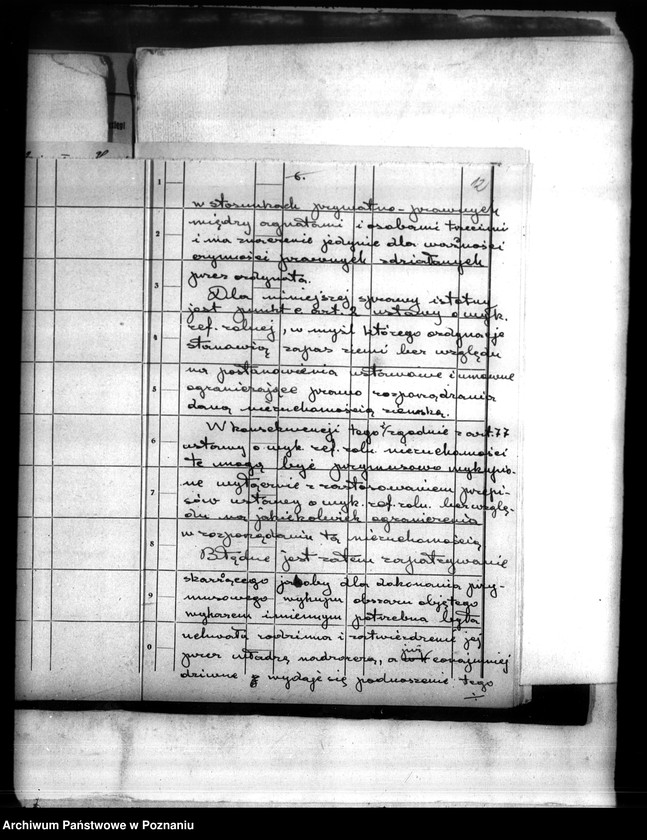 6.
12
w stosunkach prywatno-prawnych
między agnatami i osobami trzecimi
i ma znaczenie jedynie dla ważności
czynności prawnych zdziałanych
przez ordynata.
Dla niniejszej sprawy istotny
jest punkt e art. 2 ustawy o wyk.
ref. rolnej, w myśl którego ordynacje
stanowią zapas ziemi bez względu
na postanowienia ustawowe i umowne
ograniczające prawo rozporządzania
daną nieruchomością ziemską.
W konsekwencji tego zgodnie z art. 77
ustawy o wyk. ref. roln. nieruchomości
te mogą być przymusowo wykupio-
ne wyłącznie z zastosowaniem przepi-
sów ustawy o wyk. ref. roln. bez wzglę-
du na jakiekolwiek ograniczenia
w rozporządzaniu tą nieruchomością
Błędne jest zatem zapatrywanie
skarżącego jakoby dla dokonania przy-
musowego wykupu obszaru objętego
wykazem imiennym potrzebna była
uchwała rodzinna i zatwierdzenie jej
przez władzę nadzorczą, a już conajmniej
dziwne wydaje się podnoszenie tego
1
2
3
4
5
6
7
8
9
0
Archiwum Państwowe w Poznaniu